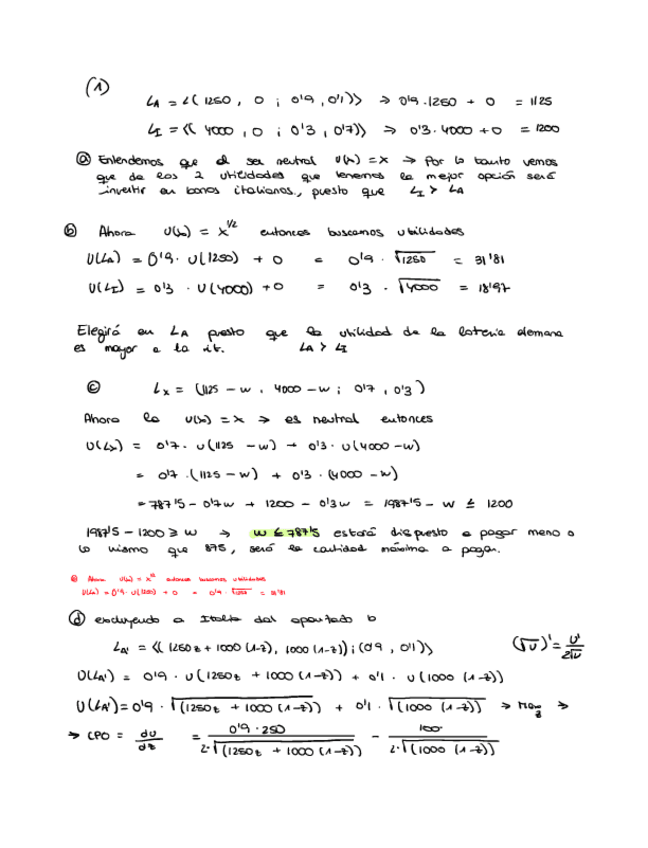 (1)
L_A = ⟨( 1250 , 0 ; 0'9 , 0'1 )⟩ → 0'9 · 1250 + 0 = 1125
L_I = ⟨( 4000 , 0 ; 0'3 , 0'7 )⟩ → 0'3 · 4000 + 0 = 1200
ⓐ Entendemos que al ser neutral U(x) = x → Por lo tanto vemos
que de las 2 utilidades que tenemos la mejor opción será
invertir en bonos italianos, puesto que L_I > L_A
ⓑ Ahora U(x) = x^1/2 entonces buscamos utilidades
U(L_A) = 0'9 · U(1250) + 0 = 0'9 · √1250 = 31'81
U(L_I) = 0'3 · U(4000) + 0 = 0'3 · √4000 = 18'97
Elegirá en L_A puesto que la utilidad de la loteria alemana
es mayor a la it. L_A > L_I
ⓒ L_x = (1125 - w , 4000 - w ; 0'7 , 0'3 )
Ahora la U(x) = x → es neutral entonces
U(L_x) = 0'7 · U(1125 - w) + 0'3 · U(4000 - w)
= 0'7 · (1125 - w) + 0'3 · (4000 - w)
= 787'5 - 0'7w + 1200 - 0'3w = 1987'5 - w ≤ 1200
1987'5 - 1200 ≥ w → w ≤ 787'5 estará dispuesto a pagar meno o
lo mismo que 875, será la cantidad máxima a pagar.
ⓑ Ahora U(x) = x^1/2 entonces buscamos utilidades
U(L_A) = 0'9 · U(1250) + 0 = 0'9 · √1250 = 31'81
ⓓ excluyendo a Italia del apartado b
L_A' = ⟨( 1250z + 1000 (1-z), 1000 (1-z)) ; (0'9 , 0'1 )⟩ (√U)' = U'/2√U
U(L_A') = 0'9 · U (1250z + 1000 (1-z)) + 0'1 · U (1000 (1-z))
U(L_A') = 0'9 · √(1250z + 1000 (1-z)) + 0'1 · √(1000 (1-z)) → Max z →
→ CPO = dU/dz = 0'9 · 250 / 2·√(1250z + 1000 (1-z)) - 100 / 2·√(1000 (1-z))